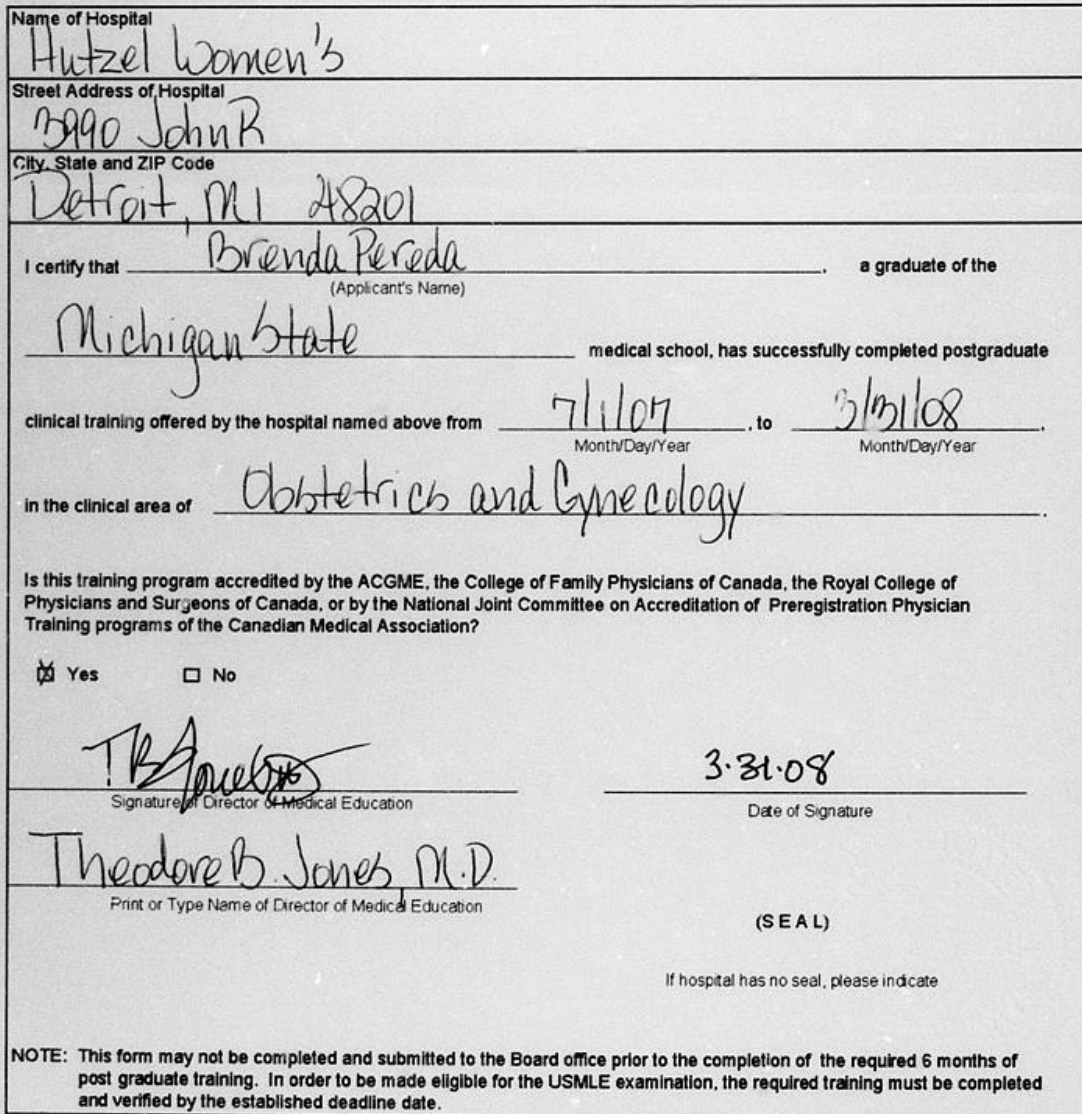 Name of Hospital
Hutzel Women's
Street Address of Hospital
3990 John R
City, State and ZIP Code
Detroit, MI 48201
I certify that Brenda Pereda, a graduate of the
(Applicant's Name)
Michigan State medical school, has successfully completed postgraduate
clinical training offered by the hospital named above from 7/1/07, to 3/31/08.
Month/Day/Year Month/Day/Year
in the clinical area of Obstetrics and Gynecology.
Is this training program accredited by the ACGME, the College of Family Physicians of Canada, the Royal College of
Physicians and Surgeons of Canada, or by the National Joint Committee on Accreditation of Preregistration Physician
Training programs of the Canadian Medical Association?
☒ Yes ☐ No
TB Jones 3.31.08
Signature of Director of Medical Education Date of Signature
Theodore B. Jones, M.D.
Print or Type Name of Director of Medical Education
(SEAL)
If hospital has no seal, please indicate
NOTE: This form may not be completed and submitted to the Board office prior to the completion of the required 6 months of
post graduate training. In order to be made eligible for the USMLE examination, the required training must be completed
and verified by the established deadline date.